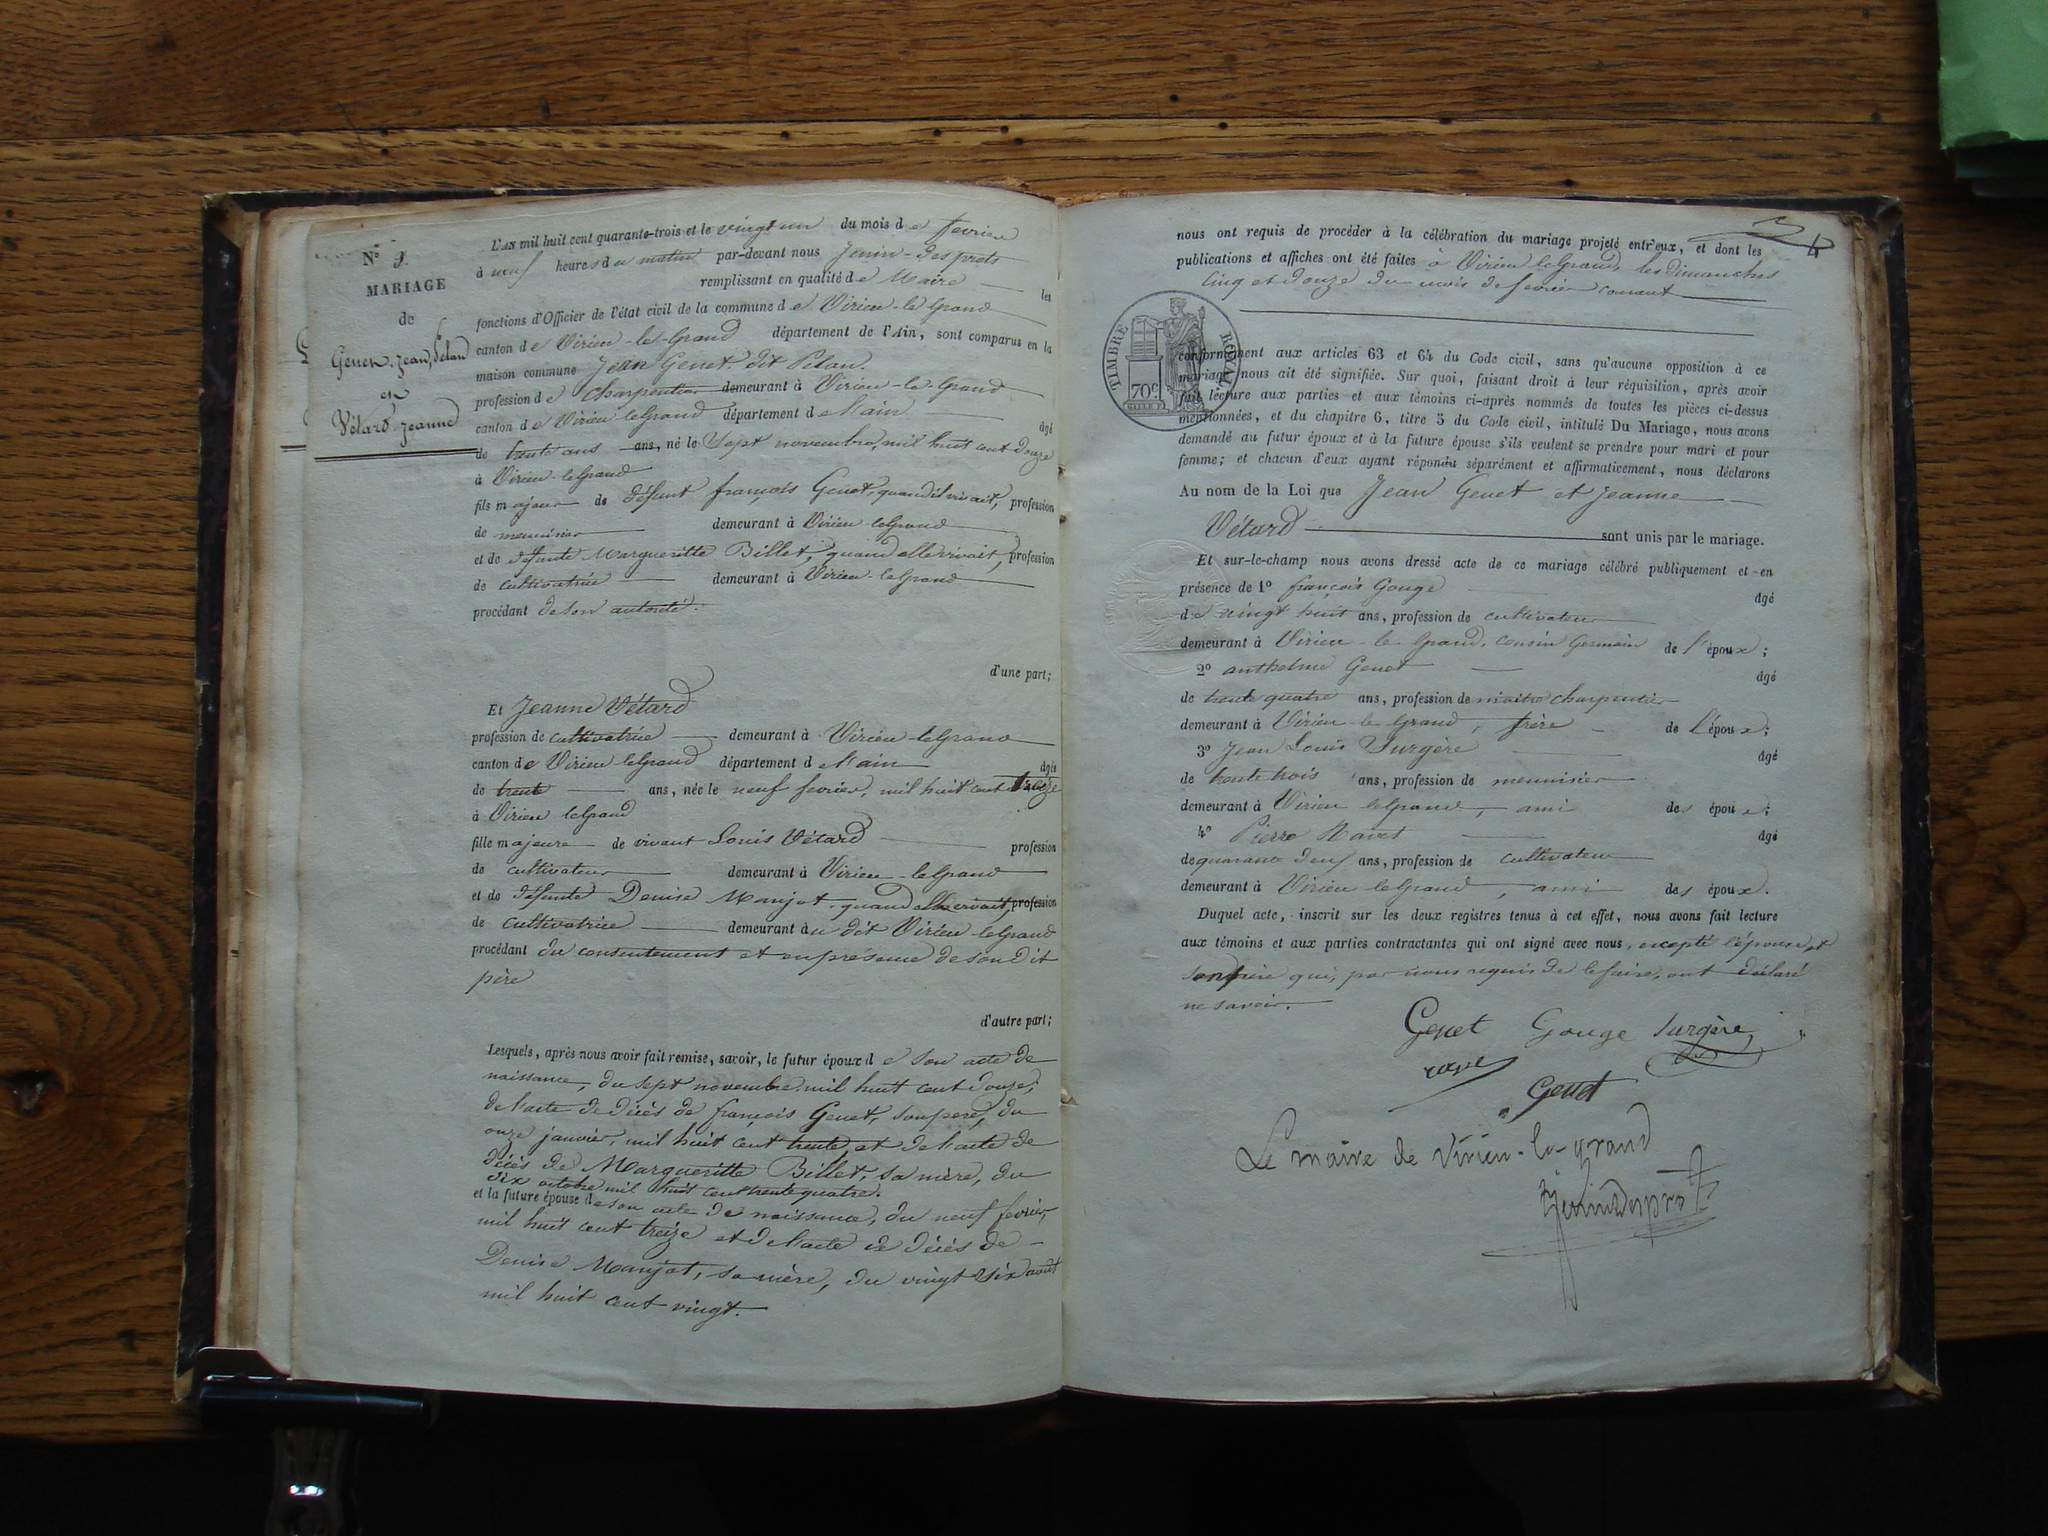 N° 3.
MARIAGE
de
Genet, Jean, dit Pélan
et
Vétard Jeanne
L'AN mil huit cent quarante-trois et le vingt un du mois de fevrier
à neuf heures du matin par-devant nous Jenin-Desprots
remplissant en qualité de Maire les
fonctions d'Officier de l'état civil de la commune de Virieu-le-Grand
canton de Virieu-le-Grand département de l'Ain, sont comparus en la
maison commune Jean Genet dit Pélan.
profession de charpentier demeurant à Virieu-le-Grand
canton de Virieu leGrand département de l'ain âgé
de trente ans ans, né le Sept novembre, mil huit cent douze
à Virieu-leGrand
fils majeur de défunt françois Genet, quand il vivait, profession
de meunisier demeurant à Virieu-leGrand
et de défunte Margueritte Billet, quand elle vivait, profession
de cultivatrice demeurant à Virieu-leGrand
procédant de son autorité.
d'une part;
Et Jeanne Vétard
profession de cultivatrice demeurant à Virieu-leGrand
canton de Virieu leGrand département de l'ain âgée
de trente ans, née le neuf fevrier, mil huit cent treize
à Virieu leGrand
fille majeure de vivant Louis Vétard profession
de cultivateur demeurant à Virieu-leGrand
et de défunte Denise Manjot, quand elle vivait, profession
de cultivatrice demeurant àu dit Virieu-leGrand
procédant du consentement et en présence de son dit
père
d'autre part;
Lesquels, après nous avoir fait remise, savoir, le futur époux de son acte de
naissance, du sept novembre mil huit cent douze;
de l'acte de décès de françois Genet, son père, du
onze janvier, mil huit cent trente, et de l'acte de
décès de Margueritte Billet, sa mère, du
dix octobre mil huit cent trente quatre.
et la future épouse de son acte de naissance, du neuf fevrier,
mil huit cent treize et de l'acte de décès de
Denise Manjot, sa mère, du vingt six aout
mil huit cent vingt.
nous ont requis de procéder à la célébration du mariage projeté entr'eux, et dont les
publications et affiches ont été faites a Virieu leGrand, les dimanches
cinq et douze du mois de fevrier courant
TIMBRE ROYAL
70c
conformément aux articles 63 et 64 du Code civil, sans qu'aucune opposition à ce
mariage nous ait été signifiée. Sur quoi, faisant droit à leur réquisition, après avoir
fait lecture aux parties et aux témoins ci-après nommés de toutes les pièces ci-dessus
mentionnées, et du chapitre 6, titre 5 du Code civil, intitulé Du Mariage, nous avons
demandé au futur époux et à la future épouse s'ils veulent se prendre pour mari et pour
femme; et chacun d'eux ayant répondu séparément et affirmativement, nous déclarons
Au nom de la Loi que Jean Genet et Jeanne
Vétard sont unis par le mariage.
Et sur-le-champ nous avons dressé acte de ce mariage célébré publiquement et en
présence de 1° françois Gouge âgé
de vingt huit ans, profession de cultivateur
demeurant à Virieu-le-Grand, cousin Germain de l'époux;
2° anthelme Genet âgé
de trente quatre ans, profession de maitre charpentier
demeurant à Virieu-le-Grand, frère de l'époux;
3° Jean Louis Surgère âgé
de trente trois ans, profession de meunisier
demeurant à Virieu leGrand, ami des époux;
4° Pierre Ravet âgé
de quarante deux ans, profession de cultivateur
demeurant à Virieu leGrand, ami des époux.
Duquel acte, inscrit sur les deux registres tenus à cet effet, nous avons fait lecture
aux témoins et aux parties contractantes qui ont signé avec nous, excepté l'épouse et
son père qui, par nous requis de le faire, ont déclaré
ne savoir.
Genet Gouge Surgère
Genet
Le maire de Virieu-le-grand